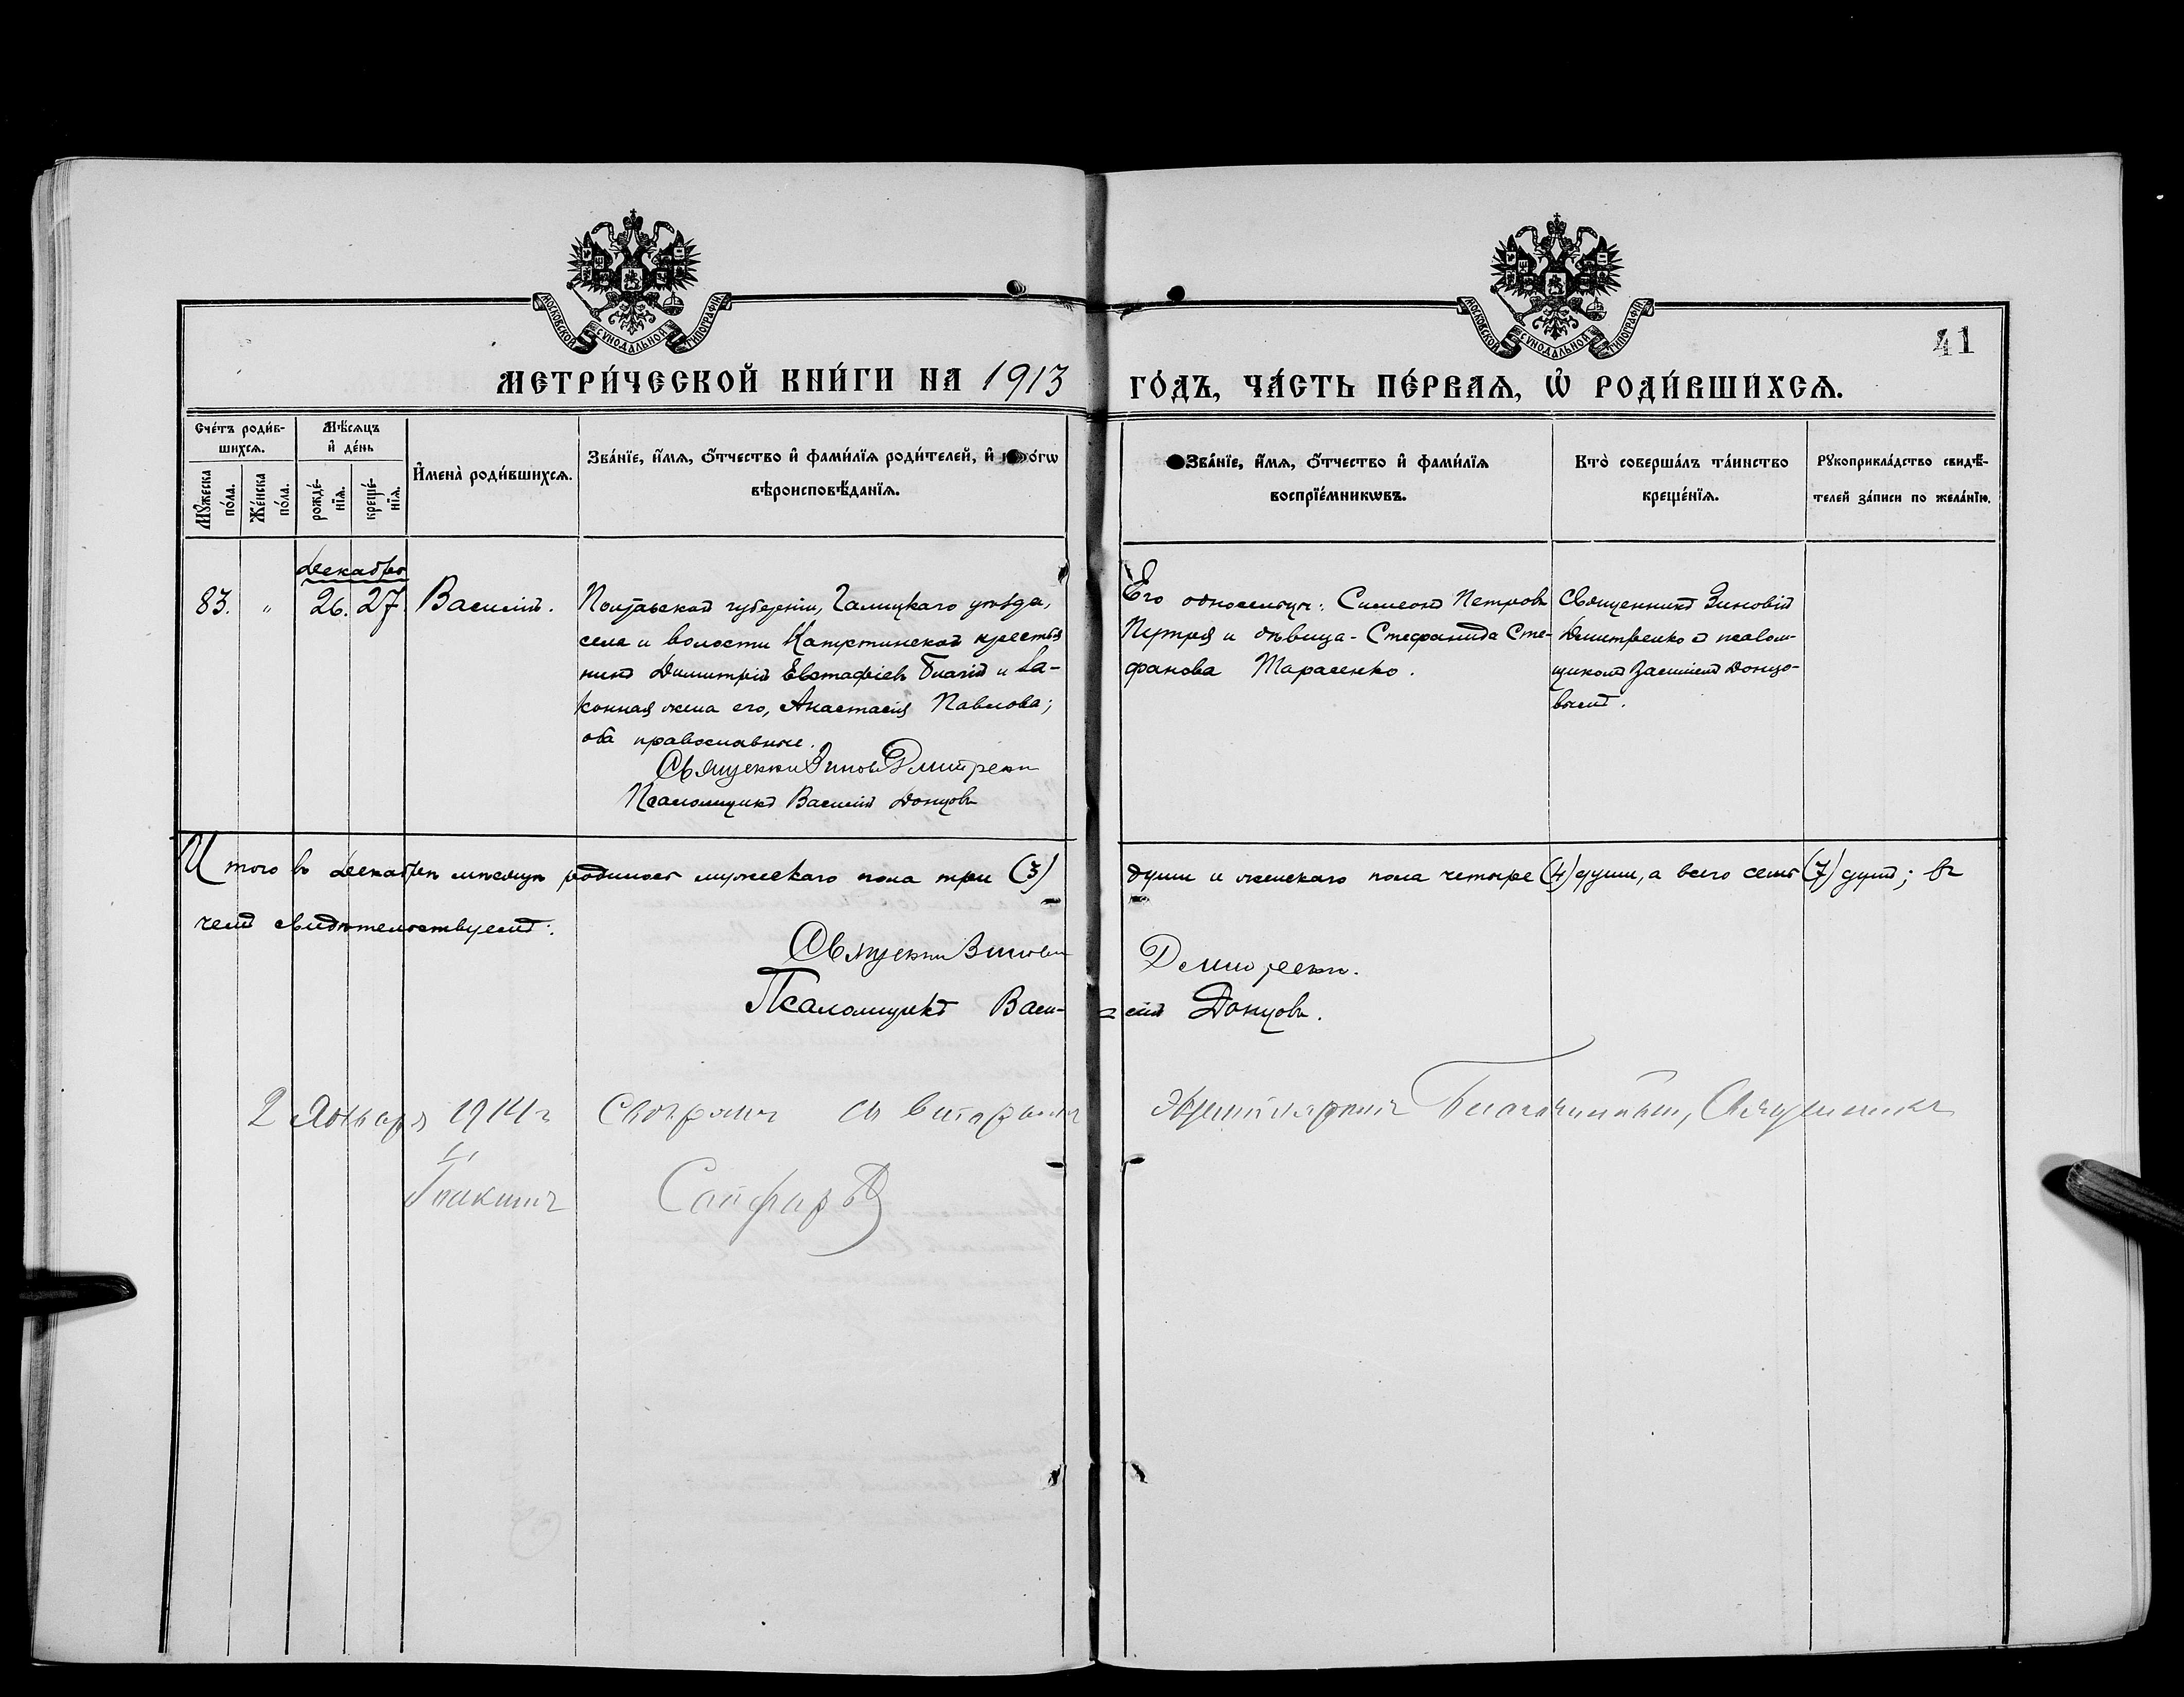 МОСКОВСКОЙ СѴНОДАЛЬНОЙ ТИПОГРАФІИ
МОСКОВСКОЙ СѴНОДАЛЬНОЙ ТИПОГРАФІИ
41
МЕТРИ́ЧЕСКОЙ КНИ́ГИ НА 1913 ГО́ДЪ, ЧА́СТЬ ПЕ́РВАѦ, Ѡ҆ РОДИ́ВШИХСѦ.
Сче́тъ роди́в-
шихсѧ.
Мꙋ́жеска по́ла.
Же́нска по́ла.
Мѣ́сѧцъ
и҆ де́нь
рожде́-
нїѧ.
креще́-
нїѧ.
И҆мена̀ роди́вшихсѧ.
Зва́нїе, и҆́мѧ, ѻ҆́тчество и҆ фами́лїѧ роди́телей, и҆
вѣроисповѣ́данїѧ.
Зва́нїе, и҆́мѧ, ѻ҆́тчество и҆ фами́лїѧ
воспрїе́мникѡвъ.
Кто̀ соверша́лъ та́инство
креще́нїѧ.
Рꙋкоприкла́дство свидѣ́-
телей за́писи по жела́нїю.
Декабрь
83. " 26. 27 Василій.
Полтавской губерніи, Гадяцкаго уѣзда,
села и волости Капустинской крестья
нинъ Димитрій Евстафіевъ и за-
конная жена его, Анастасія Павлова;
оба православные.
Священникъ Зиновій Дмитренко
Псаломщикъ Василій Донцовъ
Его односельцы: Симеонъ Петровъ
и дѣвица - Стефанида Сте-
фанова Тарасенко.
Священникъ Зиновій
Дмитренко съ псалом-
щикомъ Василіемъ Донцо-
вымъ.
Итого въ Декабрѣ мѣсяцѣ родилось мужескаго пола три (3) души и женскаго пола четыре (4) души, а всего семь (7) душъ; въ
чемъ свидѣтельствуемъ:
Священникъ Зиновій Дмитренко.
Псаломщикъ Васи-лій Донцовъ.
2 Января 1914 г